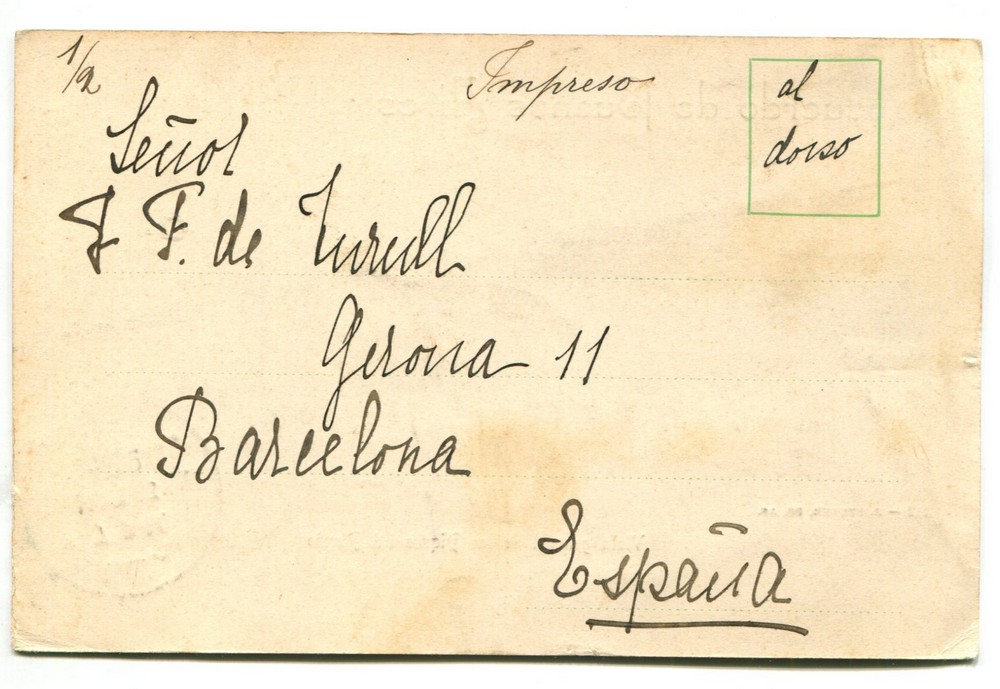 1/2
Impreso
al
dorso
Señor
J F. de Turull
Gerona 11
Barcelona
España